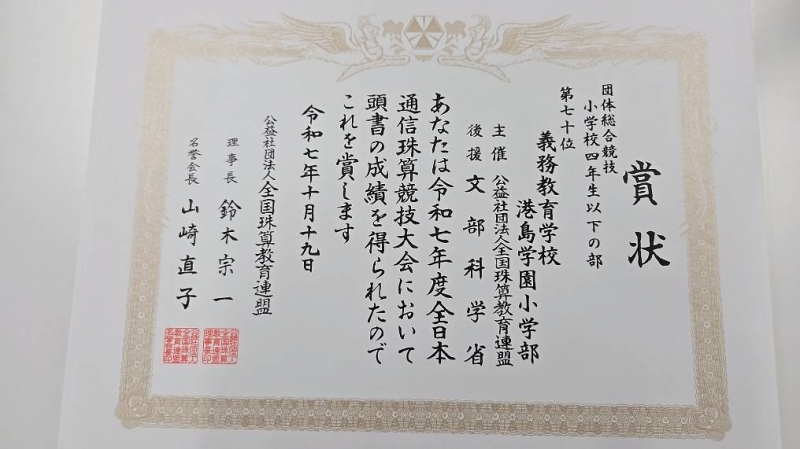 賞状
団体総合競技
小学校四年生以下の部
第七十位
義務教育学校
港島学園小学部
主催 公益社団法人全国珠算教育連盟
後援 文部科学省
あなたは令和七年度全日本
通信珠算競技大会において
頭書の成績を得られたので
これを賞します
令和七年十月十九日
公益社団法人全国珠算教育連盟
理事長 鈴木宗一
名誉会長 山崎直子